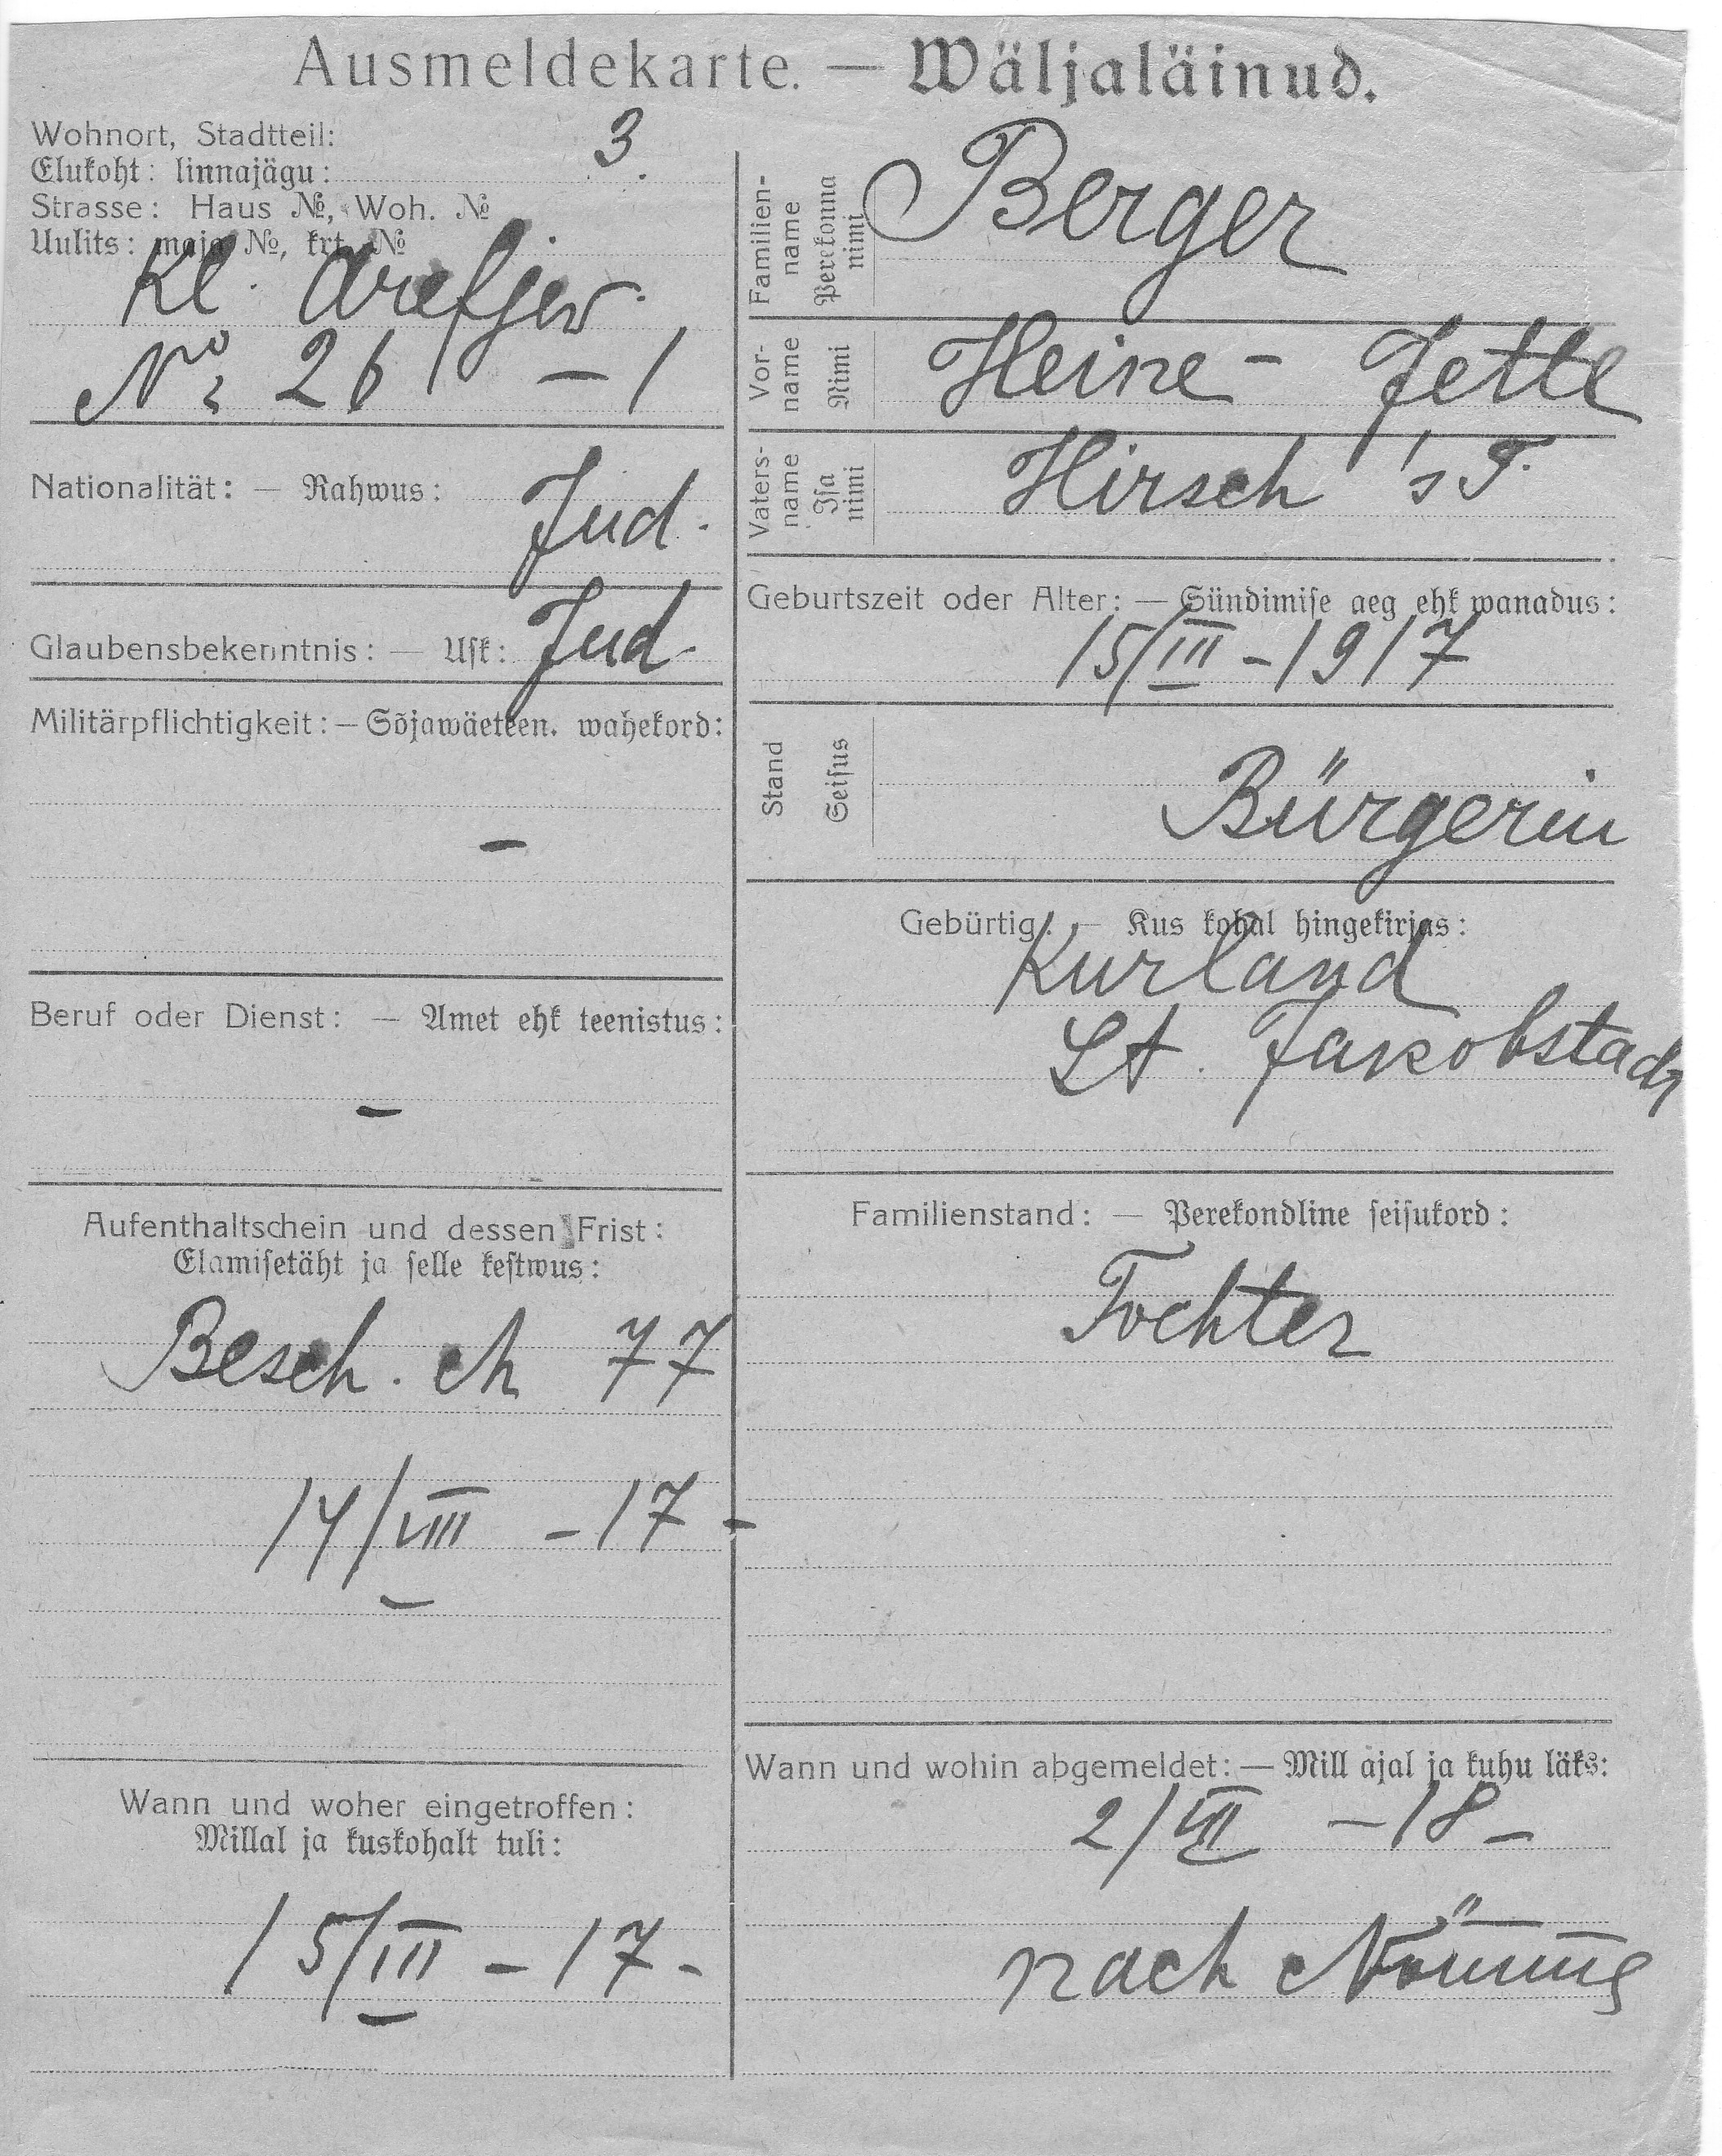 Ausmeldekarte. — Wäljaläinud.
Wohnort, Stadtteil:
Elukoht: linnajägu: 3.
Strasse: Haus №, Woh. №
Uulits: maja №, krt. №
Kl. Arefjew.
№ 26 – 1
Nationalität: — Rahwus: Jud.
Glaubensbekenntnis: — Usk: Jud.
Militärpflichtigkeit: — Sõjawäeteen. wahekord:
–
Beruf oder Dienst: — Amet ehk teenistus:
–
Aufenthaltschein und dessen Frist:
Elamisetäht ja selle kestwus:
Besch. 77
14/VIII – 17 –
Wann und woher eingetroffen:
Millal ja kuskohalt tuli:
15/III – 17 –
Familien-
name
Perekonna
nimi
Berger
Vor-
name
Nimi
Heine - Jette
Vaters-
name
Isa
nimi
Hirsch 's T.
Geburtszeit oder Alter: — Sündimise aeg ehk wanadus:
15/III – 1917
Stand
Seisus
Bürgerin
Gebürtig: — Kus kohal hingekirjas:
Kurland
St. Jakobstadt
Familienstand: — Perekondline seisukord:
Tochter
Wann und wohin abgemeldet: — Mill ajal ja kuhu läks:
2/VII – 18 –
nach Nömme